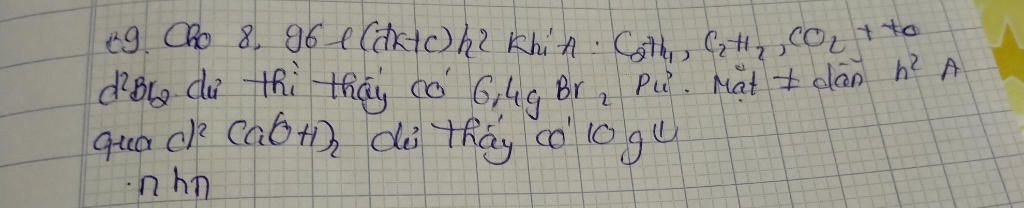 c9. Cho 8,96 l (đktc) h² khí A : C2H4, C2H2, CO2 t+ to
d²Br2 dư thì thấy có 6,4g Br2 Pứ. Mặt ≠ dẫn h² A
qua d² Ca(OH)2 dư thấy có 10g ↓
n hh